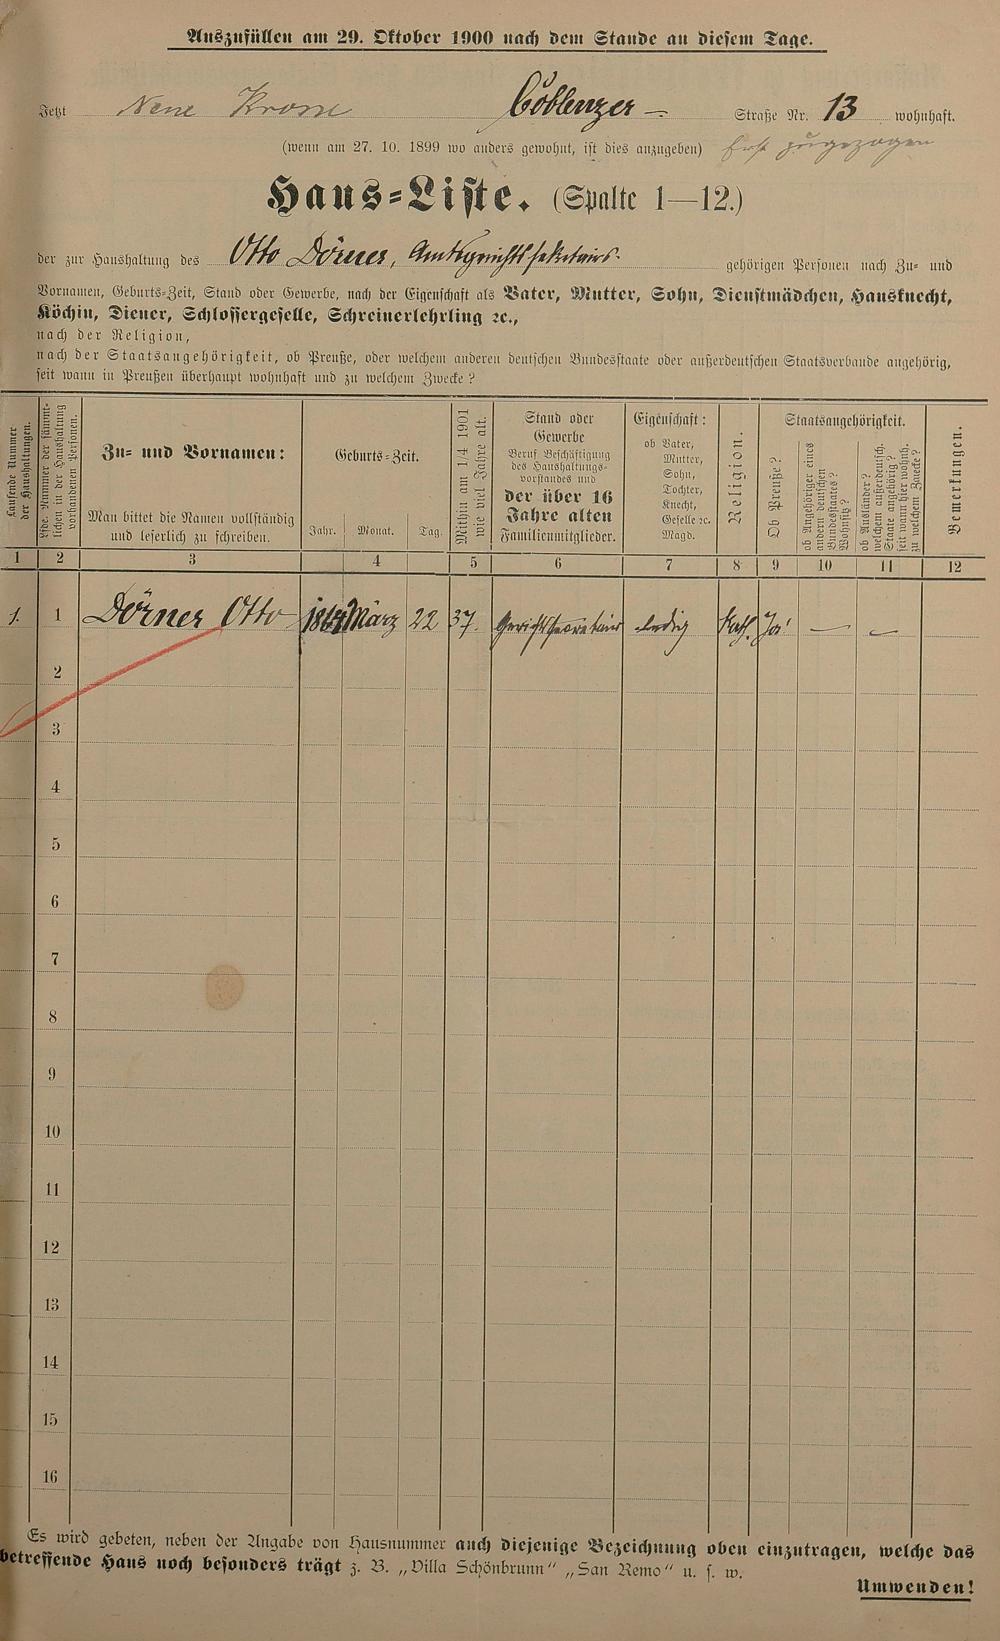 Auszufüllen am 29. Oktober 1900 nach dem Stande an diesem Tage.
Jetzt Neue Krone Coblenzer- Straße Nr. 13 wohnhaft.
(wenn am 27. 10. 1899 wo anders gewohnt, ist dies anzugeben) Erst zugezogen
Haus-Liste. (Spalte 1—12.)
der zur Haushaltung des Otto Dörner, Amtsgerichtssekretairs. gehörigen Personen nach Zu- und
Vornamen, Geburts-Zeit, Stand oder Gewerbe, nach der Eigenschaft als Vater, Mutter, Sohn, Dienstmädchen, Hausknecht,
Köchin, Diener, Schlossergeselle, Schreinerlehrling ꝛc.,
nach der Religion,
nach der Staatsangehörigkeit, ob Preuße, oder welchem anderen deutschen Bundesstaate oder außerdeutschen Staatsverbande angehörig,
seit wann in Preußen überhaupt wohnhaft und zu welchem Zwecke?
Laufende Nummer
der Haushaltungen.
Lfde. Nummer der sämmt-
lichen in der Haushaltung
vorhandenen Personen.
Zu- und Vornamen:
Man bittet die Namen vollständig
und leserlich zu schreiben.
Geburts-Zeit.
Jahr. Monat. Tag.
Mithin am 1/4 1901
wie viel Jahre alt.
Stand oder
Gewerbe
Beruf Beschäftigung
des Haushaltungs-
vorstandes und
der über 16
Jahre alten
Familienmitglieder.
Eigenschaft:
ob Vater,
Mutter,
Sohn,
Tochter,
Knecht,
Geselle ꝛc.
Magd.
Religion.
Staatsangehörigkeit.
Ob Preuße?
ob Angehöriger eines
andern deutschen
Bundesstaates?
Wohnsitz?
ob Ausländer?
welchem außerdeutsch.
Staate angehörig?
seit wann hier wohnh.
zu welchem Zwecke?
Bemerkungen.
1 2 3 4 5 6 7 8 9 10 11 12
1. 1 Dörner Otto März 22 37. Gerichtssecretair ledig Kath. Ja! — —
2
3
4
5
6
7
8
9
10
11
12
13
14
15
16
Es wird gebeten, neben der Angabe von Hausnummer auch diejenige Bezeichnung oben einzutragen, welche das
betreffende Haus noch besonders trägt z. B. „Villa Schönbrunn" „San Remo" u. s. w.
Umwenden!